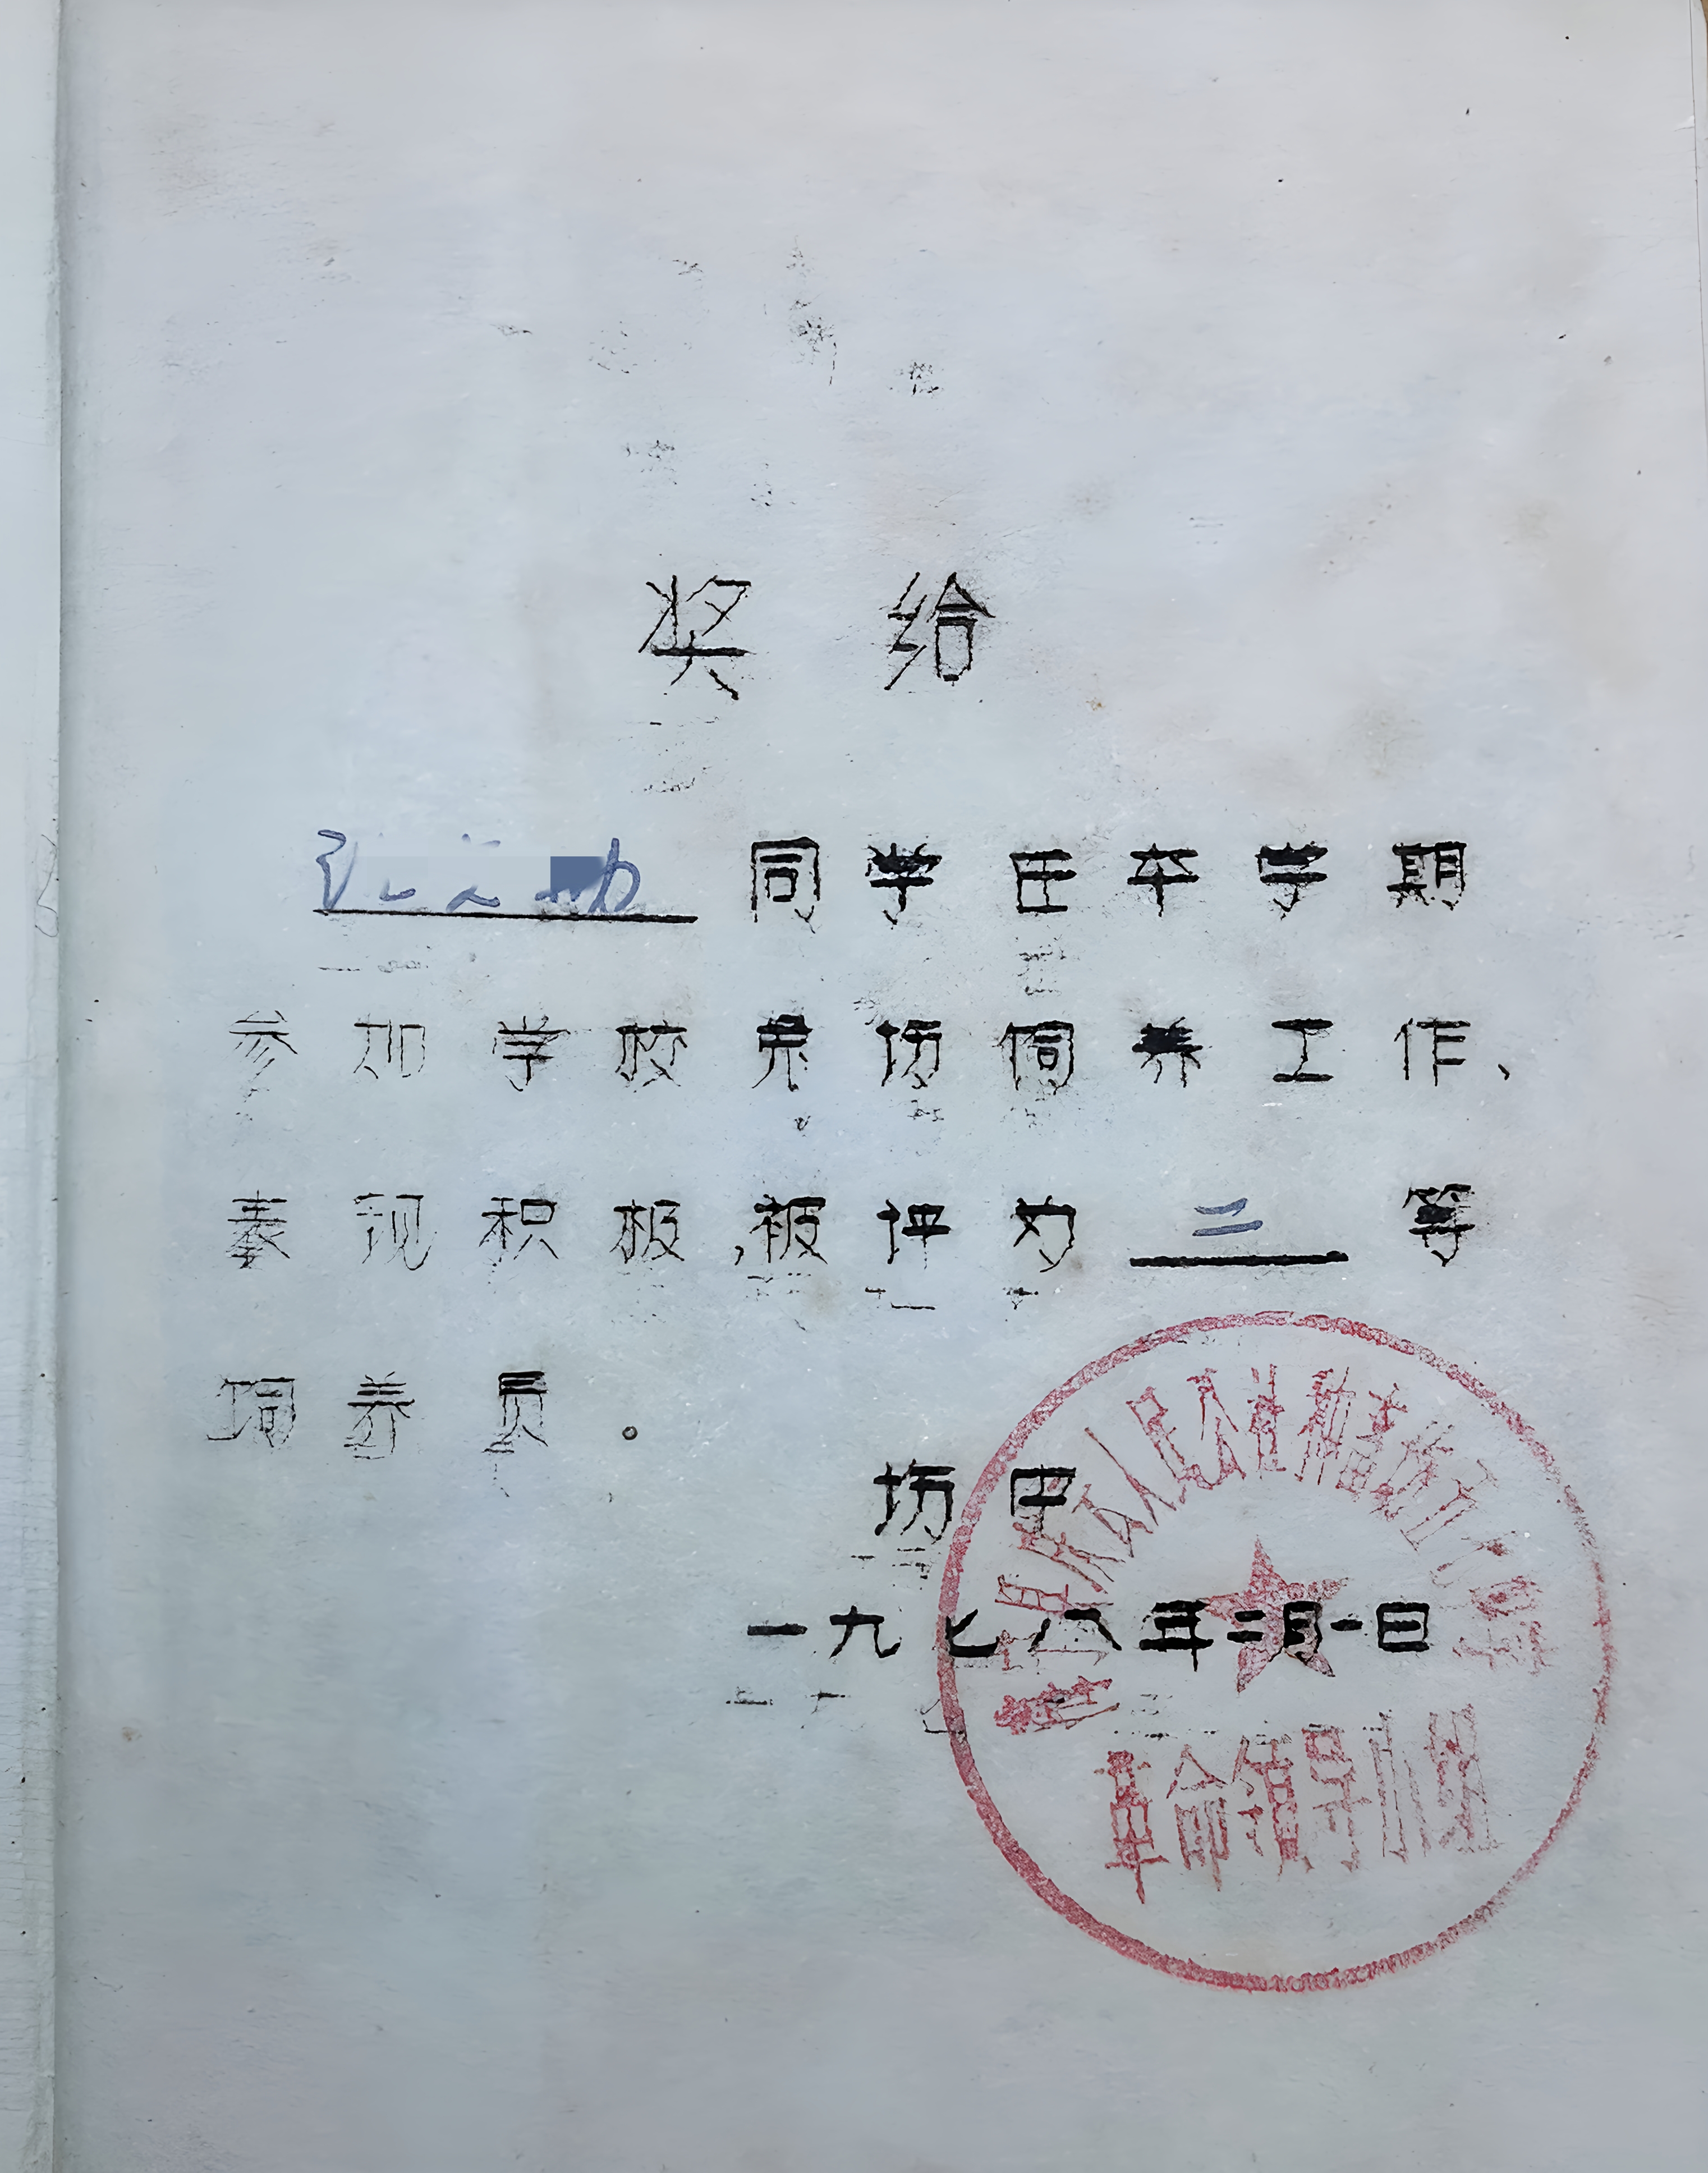 奖给
同学在本学期
参加学校兔场饲养工作、
表现积极,被评为二等
饲养员。
坊中
一九七八年二月一日
人民公社
革命领导小组